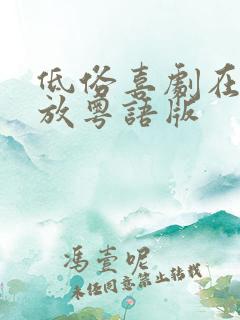 低俗喜劇在
放粵語版
馮壹呢
未经同意禁止转载